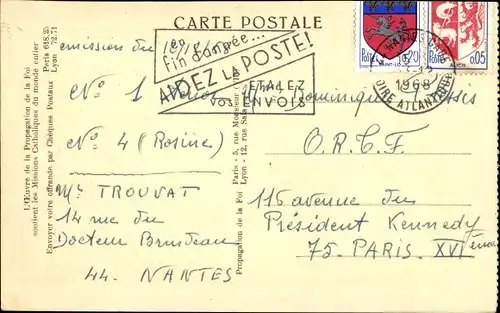 CARTE POSTALE
fin d'année...
AIDEZ LA POSTE!
ETALEZ
VOS ENVOIS
Postes 0,20
SAINT-LO
Postes 0,05
AUCH
NANTES GARE
1968
LOIRE ATLANTIQUE
émission du 1er/12
N° 1
N° 4 (Rosine)
Mr TROUVAT
14 rue du
Docteur
44. NANTES
Dominique
O.R.T.F.
115 avenue du
Président Kennedy
75. PARIS. XVIème
L'Œuvre de la Propagation de la Foi
soutient les Missions Catholiques du monde entier
Envoyer votre offrande par Chèques Postaux
Paris 618.25
Lyon 72.71
Propagation de la Foi
Paris - 5, rue Monsieur
Lyon - 12, rue Sala